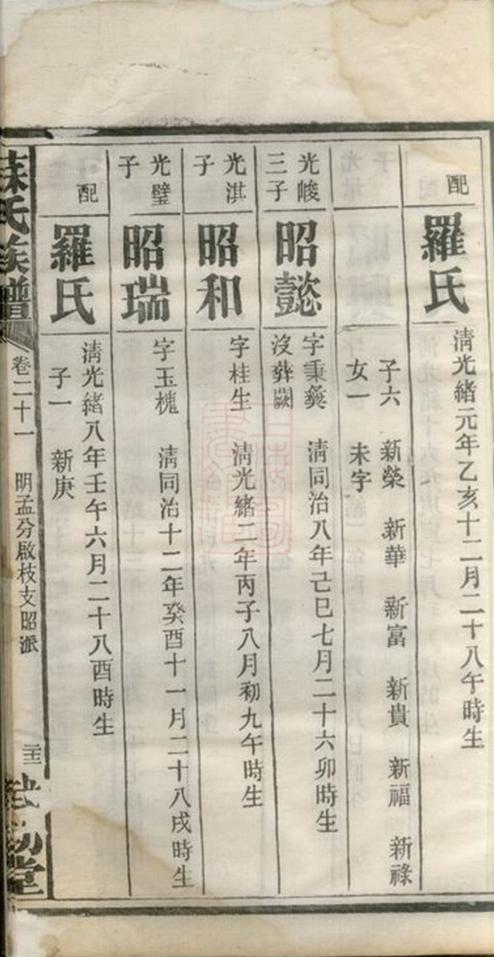 配
羅氏
清光緒元年乙亥十二月二十八午時生
子六 新榮 新華 新富 新貴 新福 新祿
女一 未字
光峻三子
昭懿
字秉彝 清同治八年己巳七月二十六卯時生
沒葬闕
光淇子
昭和
字桂生 清光緒二年丙子八月初九午時生
光璧子
昭瑞
字玉槐 清同治十二年癸酉十一月二十八戌時生
配
羅氏
清光緒八年壬午六月二十八酉時生
子一 新庚
氏族譜
卷二十一
明孟分啟枝支昭派
堂